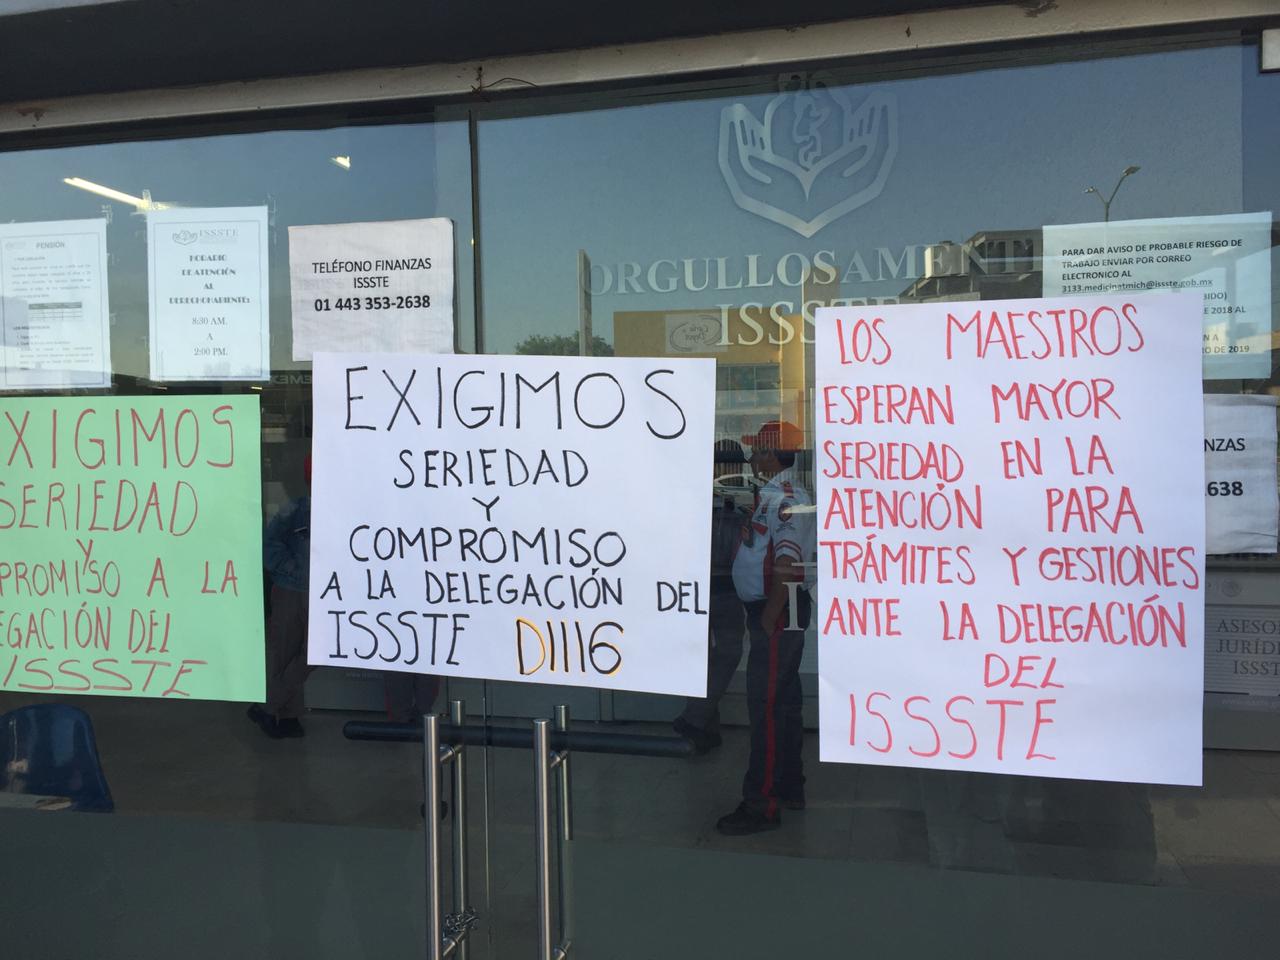 PENSIÓN
ISSSTE
HORARIO
DE ATENCIÓN
AL
DERECHOHABIENTE:
8:30 AM.
A
2:00 PM.
TELÉFONO FINANZAS
ISSSTE
01 443 353-2638
ORGULLOSAMENTE
PARA DAR AVISO DE PROBABLE RIESGO DE
TRABAJO ENVIAR POR CORREO
ELECTRONICO AL
3133.medicinatmich@issste.gob.mx
2018 AL
DE 2019
XIGIMOS
SERIEDAD
Y
PROMISO A LA
EGACIÓN DEL
ISSSTE
EXIGIMOS
SERIEDAD
Y
COMPROMISO
A LA DELEGACIÓN DEL
ISSSTE D1116
LOS MAESTROS
ESPERAN MAYOR
SERIEDAD EN LA
ATENCIÓN PARA
TRÁMITES Y GESTIONES
ANTE LA DELEGACIÓN
DEL
ISSSTE
NZAS
638
ASESO
JURÍDI
ISSST